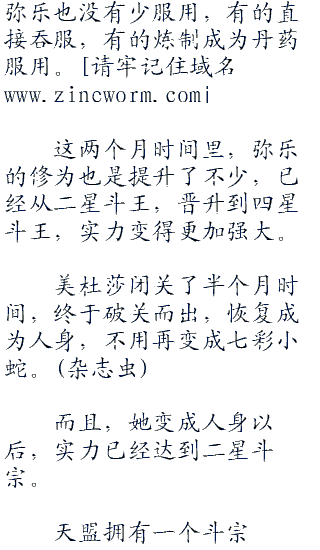 弥乐也没有少服用，有的直
接吞服，有的炼制成为丹药
服用。[请牢记住域名
www.zincworm.com|
这两个月时间里，弥乐
的修为也是提升了不少，已
经从二星斗王，晋升到四星
斗王，实力变得更加强大。
美杜莎闭关了半个月时
间，终于破关而出，恢复成
为人身，不用再变成七彩小
蛇。(杂志虫)
而且，她变成人身以
后，实力已经达到二星斗
宗。
天盟拥有一个斗宗